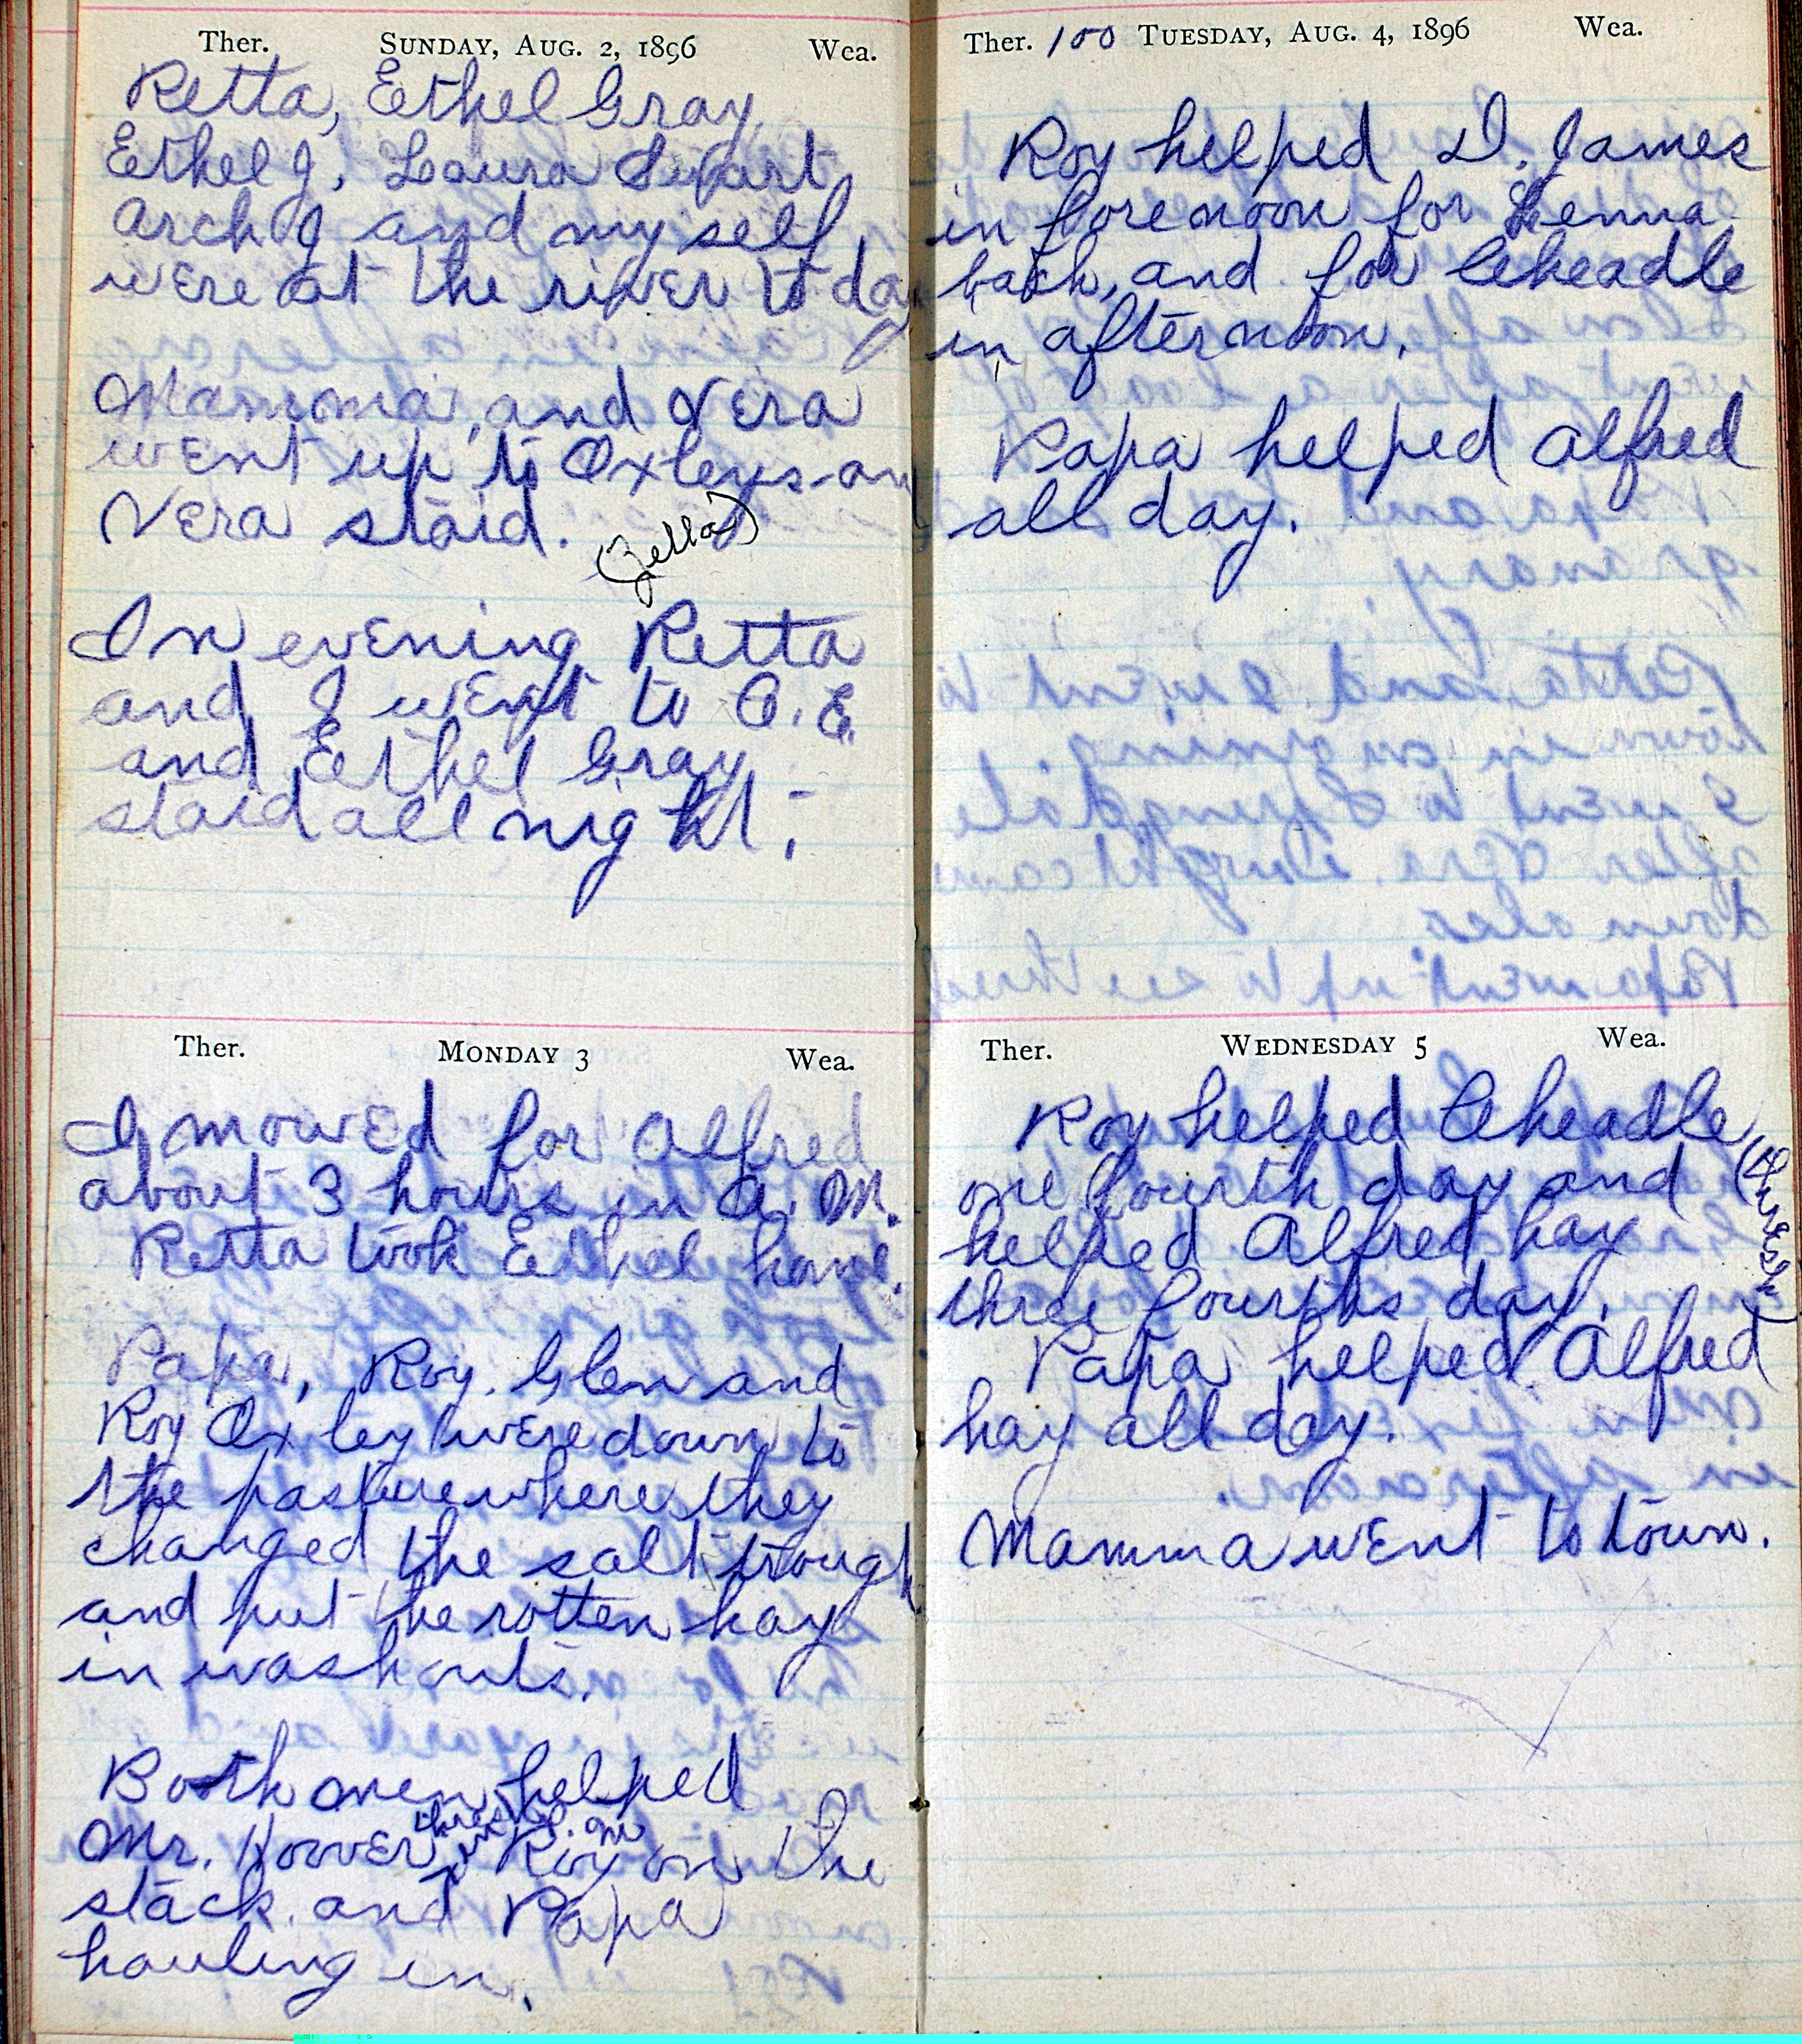 Ther. SUNDAY, AUG. 2, 1896 Wea.
Retta, Ethel Gray,
Ethel J, Laura Swart
Arch J and my self
were at the river to day
Mamma, and Vera
went up to Oxleys an
Vera staid.
(Zella)
In evening Retta
and I went to C. E.
and Ethel Gray
staid all night.
Ther. MONDAY 3 Wea.
I mowed for Alfred
about 3 hours in A. M.
Retta took Ethel home.
Papa, Roy, Glen and
Roy Oxley were down to
the pasture where they
changed the salt trough
and put the rotten hay
in washouts.
Both men helped
thresh in P. M
Mr. Hoover Roy on the
stack and Papa
hauling in.
Ther. 100 TUESDAY, AUG. 4, 1896 Wea.
Roy helped D. James
in forenoon for Lenna
back, and for Cheadle
in afternoon.
Papa helped Alfred
all day.
Ther. WEDNESDAY 5 Wea.
Roy helped Cheadle
(thresh)
one fourth day and
helped Alfred hay
three fourths day.
Papa helped Alfred
hay all day.
Mamma went to town.